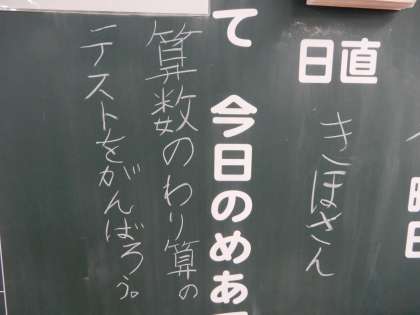 日直
きほさん
今日のめあて
算数のわり算の
テストをがんばろう。